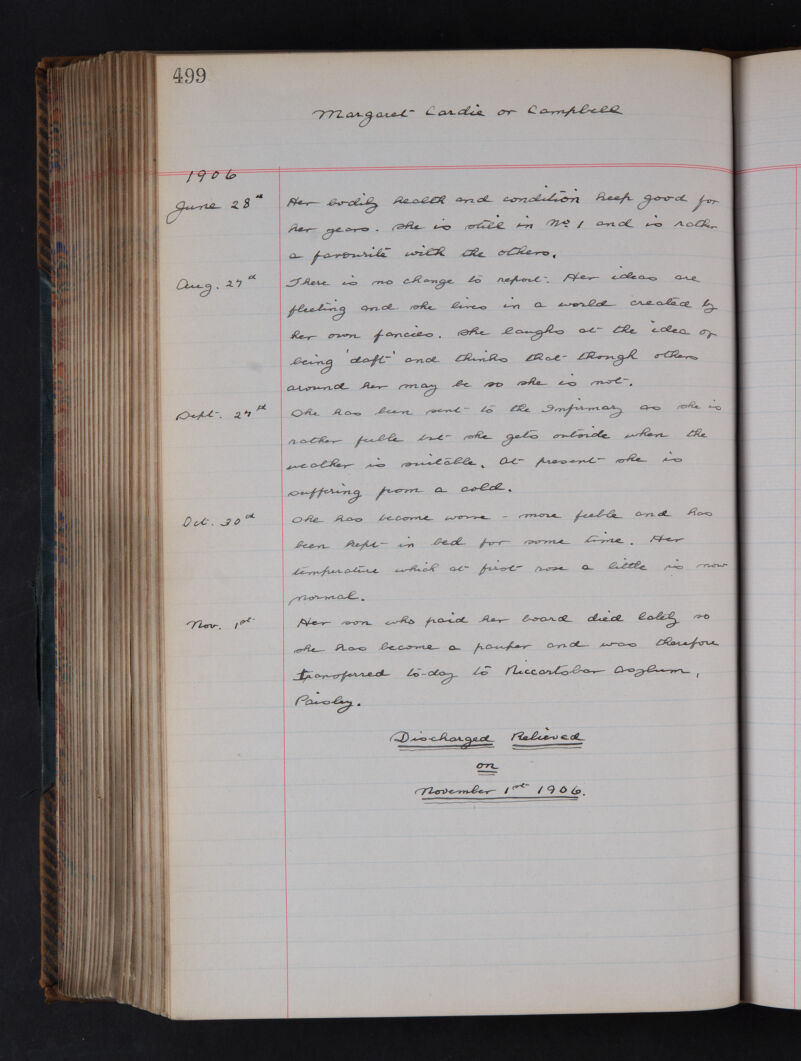 499
Margaret Cardie or Campbell
1906
June 28th Her bodily health and condition keep good for
her years. She is still in No. 1 and is rather
a favourite with the others.
Aug. 27th There is no change to report. Her ideas are
fleeting and she lives in a world created by
her own fancies. She laughs at the idea of
being 'daft' and thinks that though others
around her may be so she is not.
Sept. 27th She has been sent to the Infirmary as she is
rather feeble but she gets outside when the
weather is suitable. At present she is
suffering from a cold.
Oct. 30th She has become worse - more feeble and has
been kept in bed for some time. Her
temperature which at first rose a little is now
normal.
Nov. 1st Her son who paid her board died lately so
she has become a pauper and was therefore
transferred to-day to Riccartsbar Asylum,
Paisley.
Discharged Relieved
on
November 1st 1906.